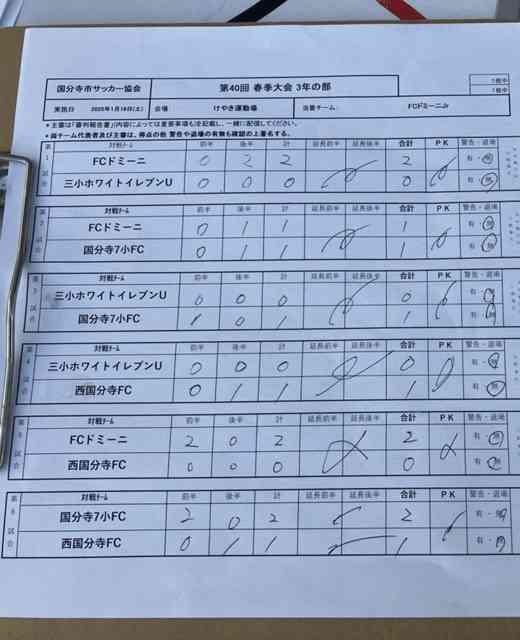 国分寺市サッカー協会 第40回 春季大会 3年の部 1枚中 1枚中
実施日 2025年1月18日(土) 会場 けやき運動場 当番チーム: FCドミーニJr
*主審は「審判報告書」(内容によっては重要事項も)を記載し、一緒に配信してください。
*両チーム代表者及び主審は、得点の他 警告や退場の有無も確認の上署名する。
第1試合 対戦チーム 前半 後半 計 延長前半 延長後半 合計 PK 警告・退場
FCドミーニ 0 2 2 2 有・無
三小ホワイトイレブンU 0 0 0 0 有・無
第2試合 対戦チーム 前半 後半 計 延長前半 延長後半 合計 PK 警告・退場
FCドミーニ 0 1 1 1 有・無
国分寺7小FC 0 1 1 1 有・無
第3試合 対戦チーム 前半 後半 計 延長前半 延長後半 合計 PK 警告・退場
三小ホワイトイレブンU 0 0 0 0 有・無
国分寺7小FC 1 0 1 1 有・無
第4試合 対戦チーム 前半 後半 計 延長前半 延長後半 合計 PK 警告・退場
三小ホワイトイレブンU 0 0 0 0 有・無
西国分寺FC 0 1 1 1 有・無
第5試合 対戦チーム 前半 後半 計 延長前半 延長後半 合計 PK 警告・退場
FCドミーニ 2 0 2 2 有・無
西国分寺FC 0 0 0 0 有・無
第6試合 対戦チーム 前半 後半 計 延長前半 延長後半 合計 PK 警告・退場
国分寺7小FC 2 0 2 2 有・無
西国分寺FC 0 1 1 1 有・無